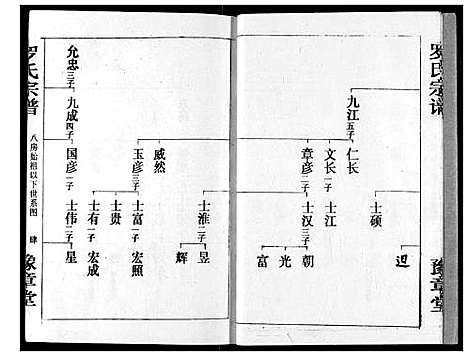 罗氏宗谱
豫章堂
九江 五子
仁长
士硕
迟
文长 一子
士江
章彦 二子
士汉 三子
朝
光
富
士淮 二子
昱
辉
威然
玉彦 三子
士富 一子
宏照
士贵
士有 一子
宏成
国彦 二子
士伟 二子
星
允忠 三子
九成 四子
罗氏宗谱
八房始祖以下世系图
肆
豫章堂